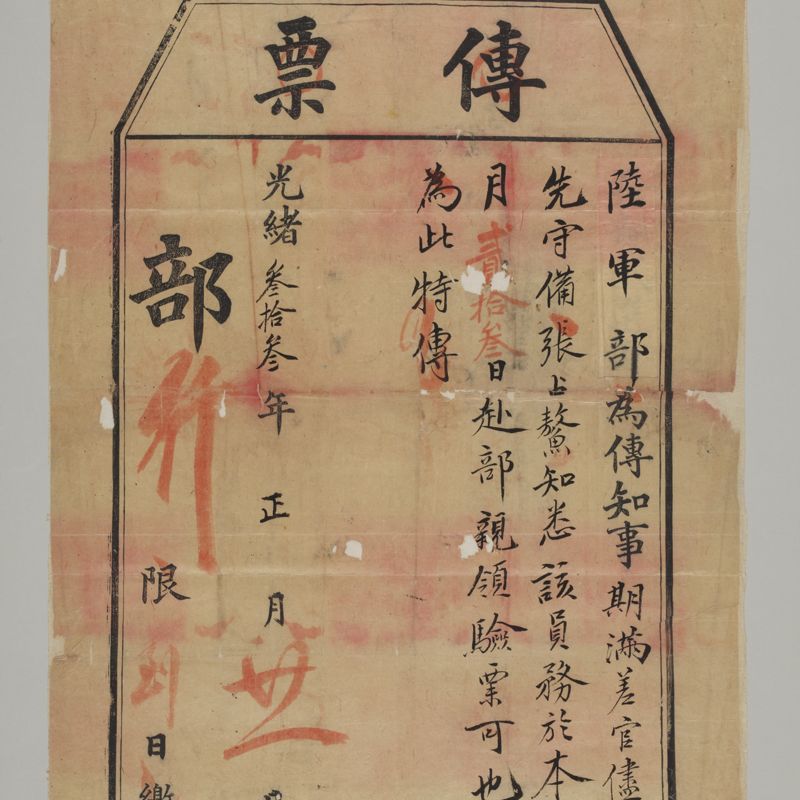 傳票
陸軍部為傳知事期滿差官儘
先守備張占鰲知悉該員務於本
月貳拾叁日赴部親領驗票可也
為此特傳
光緒叁拾叁年正月廿
部行
限日繳